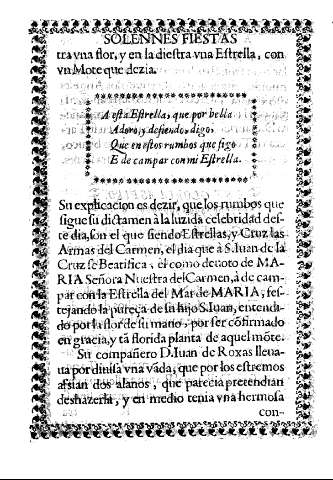 SOLENNES FIESTAS
tra vna flor, y en la diestra vna Estrella, con
vn Mote que dezia.
A esta Estrella, que por bella
Adoro, y defiendo, digo,
Que en estos rumbos que sigo
E de campar con mi Estrella.
Su explicacion es dezir, que los rumbos que
sigue su dictamen à la luzida celebridad des-
te dia, son el que siendo Estrellas, y Cruz las
Armas del Carmen, el dia que à S. Iuan de la
Cruz se Beatifica, èl como deuoto de MA-
RIA Señora Nuestra del Carmen, à de cam-
par con la Estrella del Mar de MARIA, fes-
tejando la pureça de su hijo S. Iuan, entenda-
do por la flor de su mano, por ser cõfirmado
en gracia, y tã florida planta de aquel mõte.
Su compañero D. Iuan de Roxas lleua-
ua por diuisa vna vãda, que por los estremos
assian dos alanos, que parecia pretendian
deshazerla, y en medio tenia vna hermosa
con-